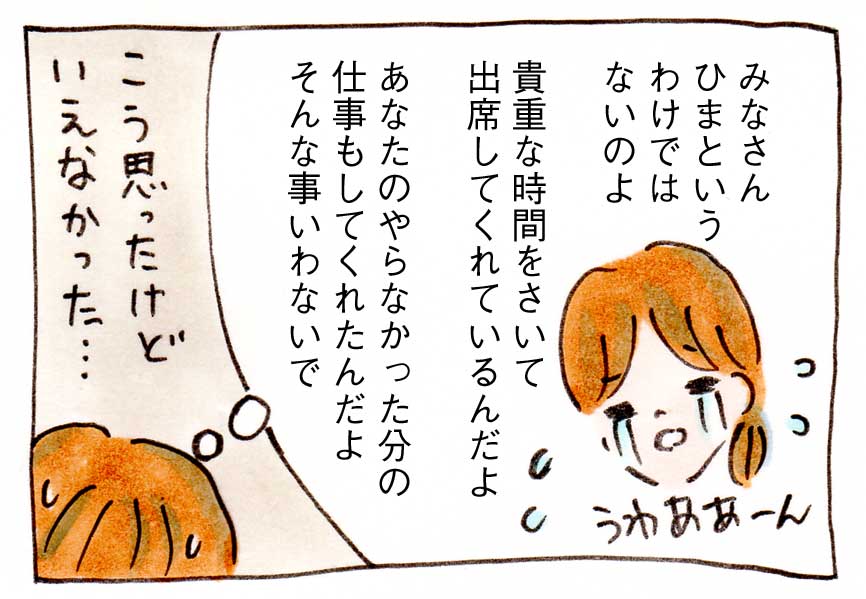 みなさん
ひまという
わけでは
ないのよ
貴重な時間をさいて
出席してくれているんだよ
あなたのやらなかった分の
仕事もしてくれたんだよ
そんな事いわないで
うわああーん
こう思ったけど
いえなかった…